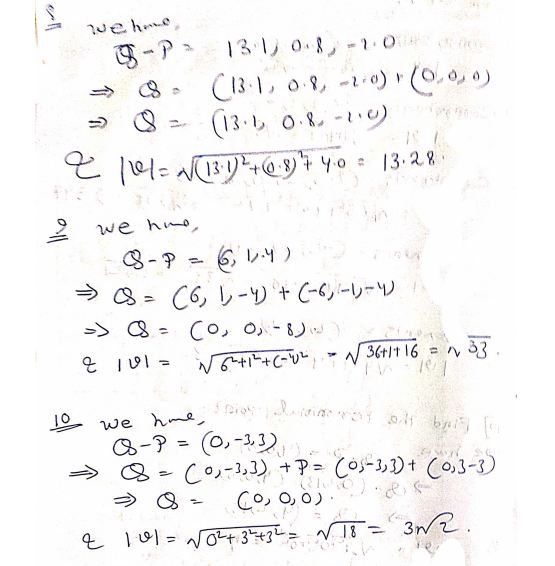 8 we have,
Q-P = 13.1, 0.8, -2.0
⇒ Q = (13.1, 0.8, -2.0) + (0, 0, 0)
⇒ Q = (13.1, 0.8, -2.0)
& |v| = √(13.1)²+(0.8)²+4.0 = 13.28.
9 we have,
Q-P = (6, 1,-4)
⇒ Q = (6, 1,-4) + (-6,-1,-4)
⇒ Q = (0, 0, -8)
& |v| = √6²+1²+(-4)² = √36+1+16 = √33.
10 we have,
Q-P = (0,-3,3)
⇒ Q = (0,-3,3) + P = (0,-3,3) + (0,3-3)
⇒ Q = (0,0,0).
& |v| = √0²+3²+3² = √18 = 3√2.